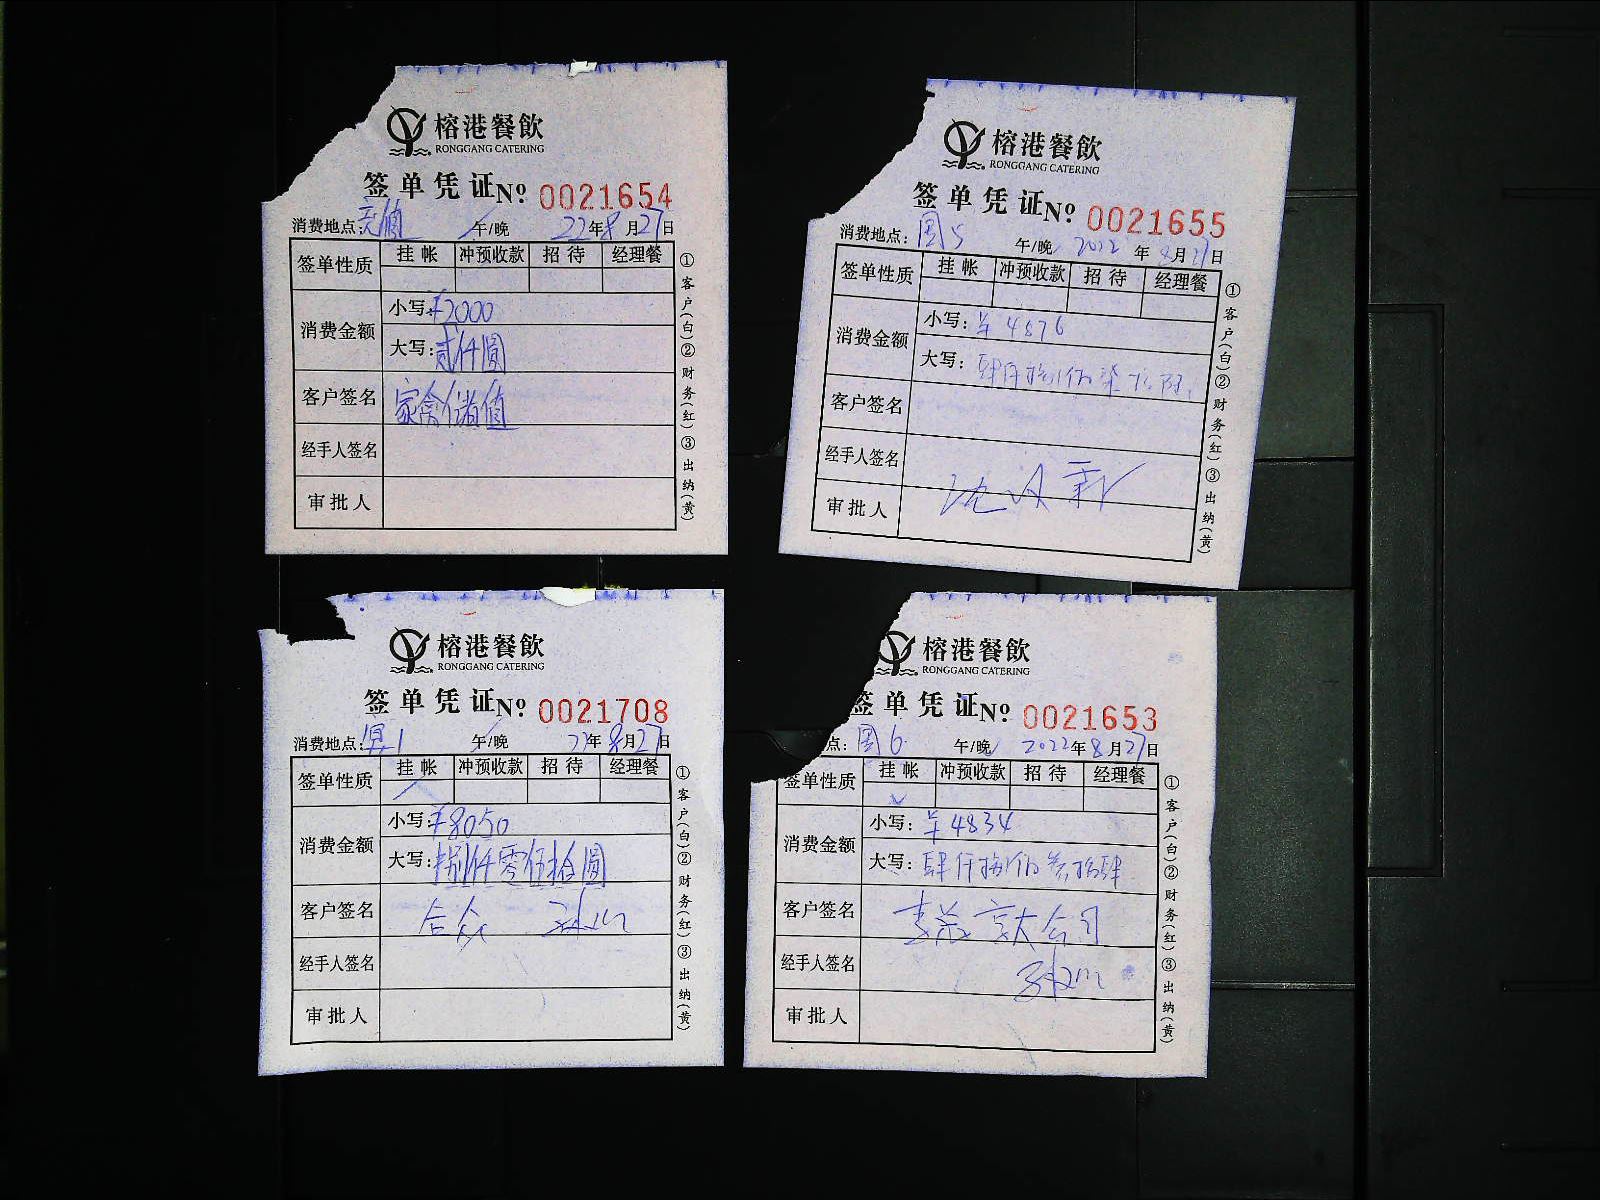 榕港餐飲
RONGGANG CATERING
签单凭证№ 0021654
消费地点:充值 午/晚 22年8月27日
签单性质 挂帐 冲预收款 招待 经理餐
消费金额 小写:¥2000
大写:贰仟圆
客户签名 家禽储值
经手人签名
审批人
①客户(白)②财务(红)③出纳(黄)
榕港餐飲
RONGGANG CATERING
签单凭证№ 0021655
消费地点:周5 午/晚 2022年8月27日
签单性质 挂帐 冲预收款 招待 经理餐
消费金额 小写:羊4876
大写:肆仟捌佰柒拾陆
客户签名
经手人签名 沈
审批人
①客户(白)②财务(红)③出纳(黄)
榕港餐飲
RONGGANG CATERING
签单凭证№ 0021708
消费地点: 1 午/晚 22年8月27日
签单性质 挂帐 冲预收款 招待 经理餐
消费金额 小写:¥8050
大写:捌仟零伍拾圆
客户签名 合众
经手人签名
审批人
①客户(白)②财务(红)③出纳(黄)
榕港餐飲
RONGGANG CATERING
签单凭证№ 0021653
点:周6 午/晚 2022年8月27日
签单性质 挂帐 冲预收款 招待 经理餐
消费金额 小写:羊4834
大写:肆仟捌佰叁拾肆
客户签名 大公司
经手人签名
审批人
①客户(白)②财务(红)③出纳(黄)